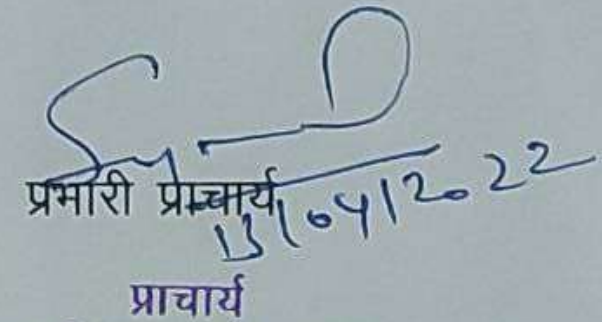 प्रभारी प्राचार्य
13/04/2022
प्राचार्य